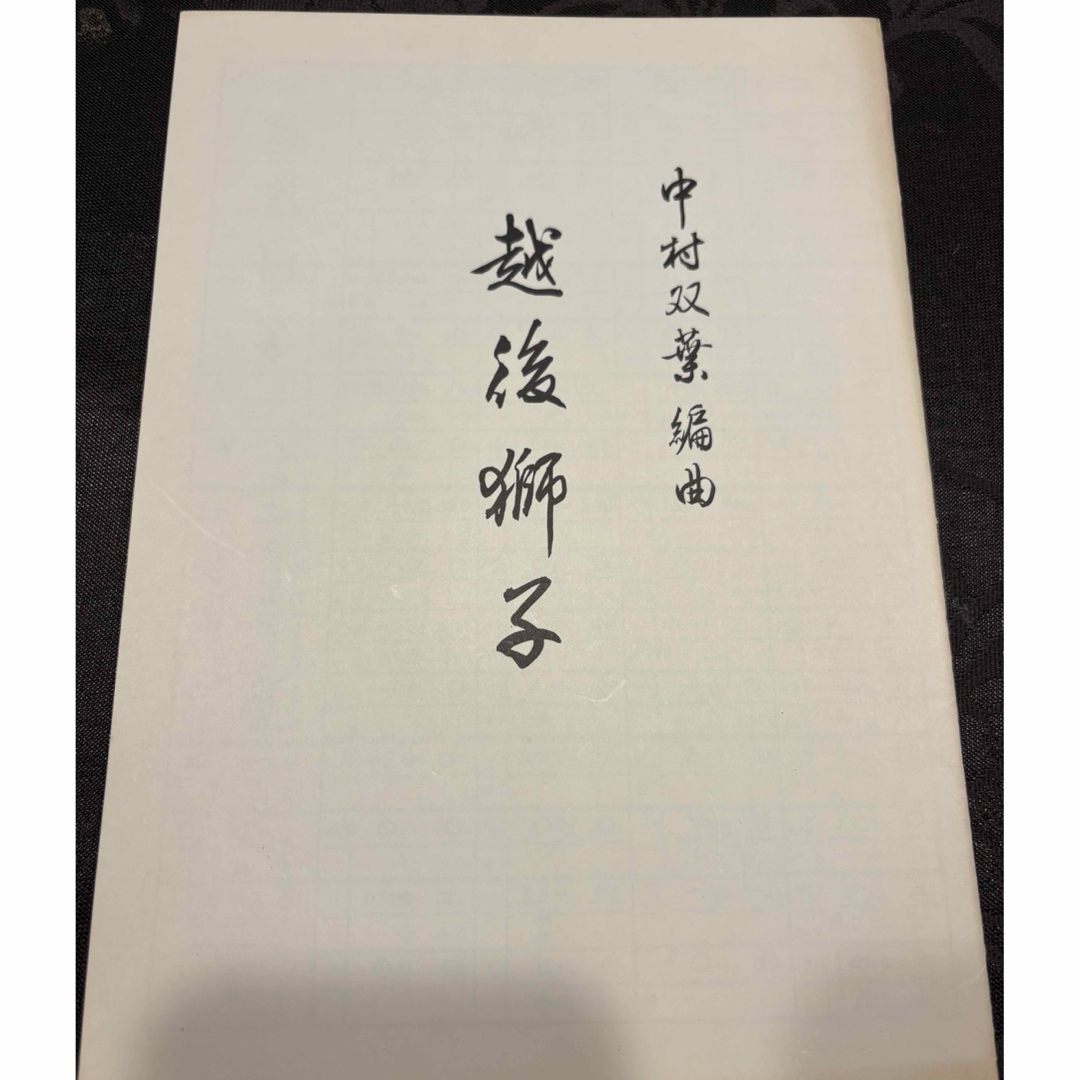 中村双葉編曲
越後獅子